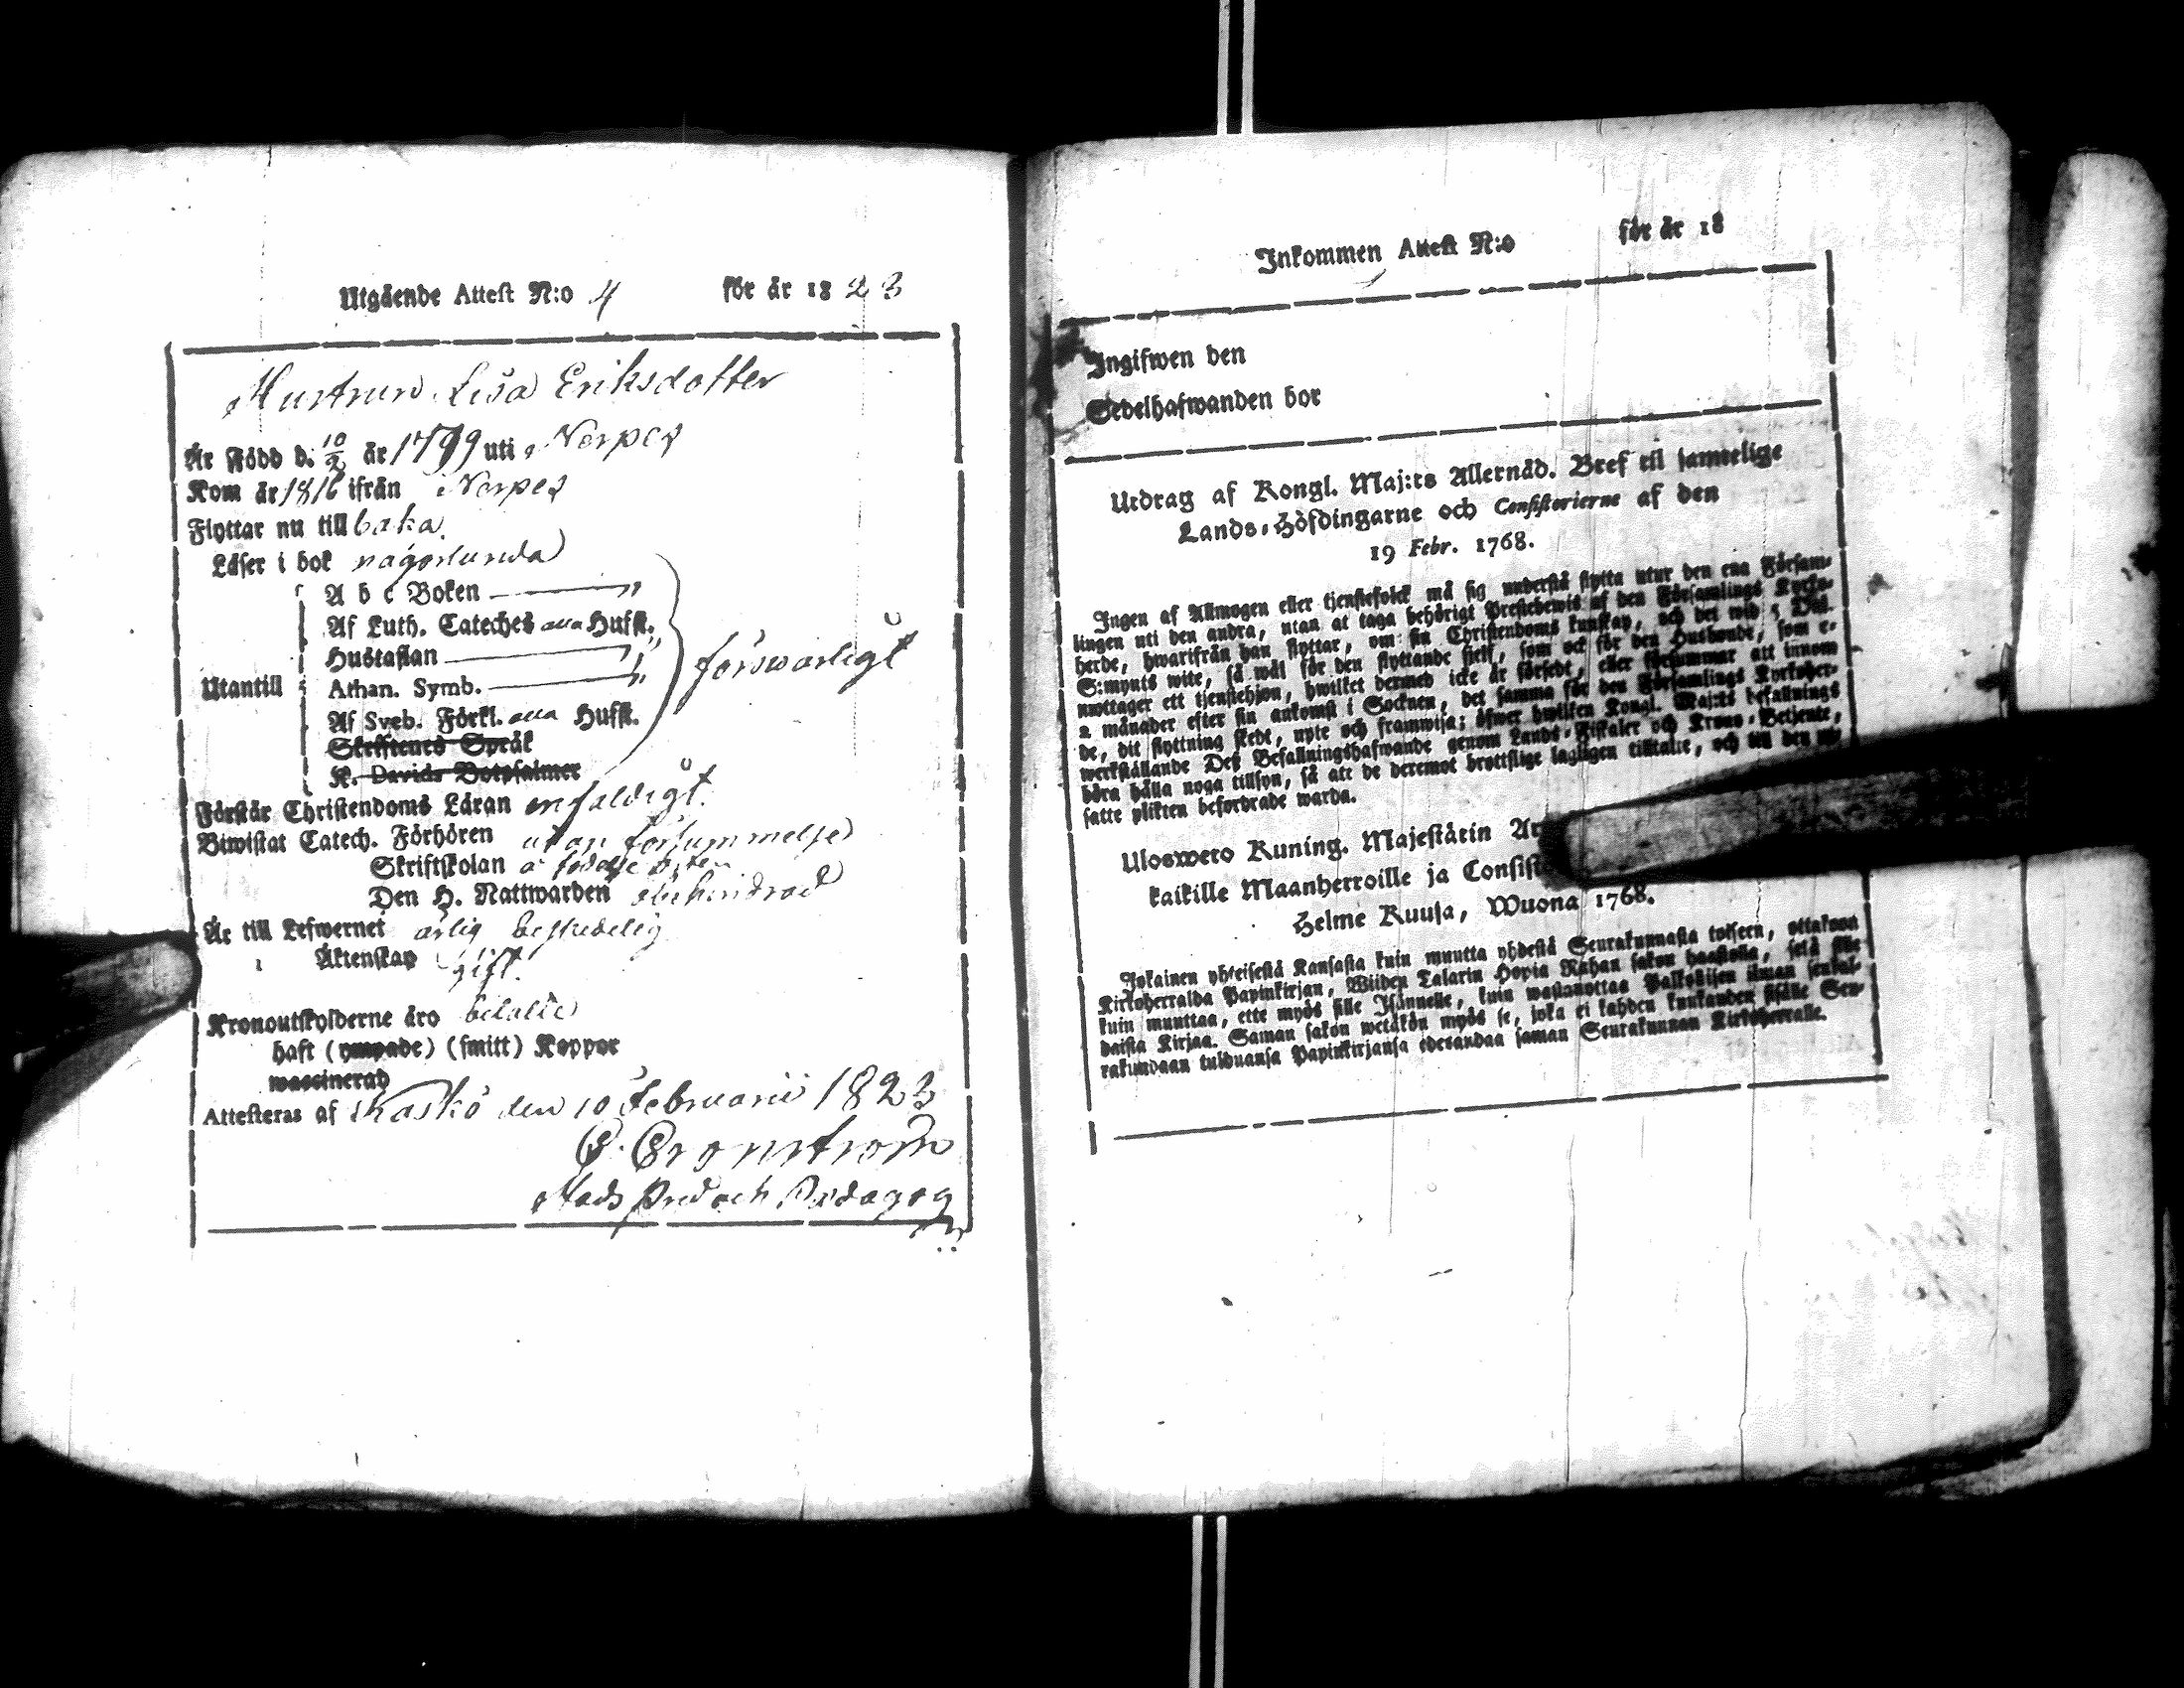 Utgående Attest N:o 4 för år 1823
Hustrun Lisa Eriksdotter
År Född d. 10/2 år 1799 uti Nerpes
Kom år 1816 ifrån Nerpes
Flyttar nu till baka
Läser i bok någorlunda
A b c Boken
Af Luth. Cateches alla Hufst.
Hustaflan
Utantill
Athan. Symb.
försvarligt
Af Sveb. Förkl. alla Hufst.
Skrifftenes Språk
K. Davids Botpsalmer
Förstår Christendoms Läran enfaldigt.
Biwistat Catech. Förhören utan försummelse
Skriftskolan å födelse orten
Den H. Nattwarden obehindrad
År till Lefwernet ärlig beskedelig
Äktenskap gift.
Kronoutskylderne äro betalde
haft (ympade) (smitt) Koppor
waccinerad
Attesteras af Kaskö den 10 Februarii 1823
Stads Pred och Pædagog
Inkommen Attest N:o för år 18
Ingifwen den
Sedelhafwanden bor
Utdrag af Kongl. Maj:ts Allernåd. Bref til samtelige
Lands-Höfdingarne och Consistorierne af den
19 Febr. 1768.
Ingen af Allmogen eller tjenstefolck må sig understå flytta utur den ena Församlingen
lingen uti den andra, utan at taga behörigt Prestebewis af den Församlings Kyrko-
herde, hwarifrån han flyttar, om sin Christendoms kunskap, och det wid 5 Dal.
S:mynts wite, så wäl för den flyttande sielf, som ock för den Husbonde, som e-
mottager ett tjenstehjon, hwilket dermed icke är försedt, eller försummar att innom
2 månader efter sin ankomst i Socknen, det samma för den Församlings Kyrkoher-
de, dit flyttning skedt, upte och framwisa; öfwer hwilken Kongl. Maj:ts befallnings
werkställande Deß Befallningshafwande genom Lands-Fiskaler och Krono-Betjente,
böra hålla noga tillsyn, så att de deremot bryttslige lagligen tilltalte, och till den ut-
satte plikten befordrade warda.
Uloswero Kuning. Majestätin Ar
kaikille Maanherroille ja Consist
Helme Kuusa, Wuona 1768.
Jokainen yhteisestä Kansasta kuin muutta yhdestä Seurakunnasta toiseen, ottakoon
Kirkoherralda Papinkirjan, Wiiden Talarin Hopia Rahan sakon haastolla, sekä sille
kuin muuttaa, ette myös sille Isännelle, kuin wastanottaa Palkolisen ilman senkal-
daista Kirjaa. Saman sakon wetäkön myös se, joka ei kahden kuukauden sisälle Seu-
rakundaan tulduansa Papinkirjansa edesandaa saman Seurakunnan Kirkoherralle.